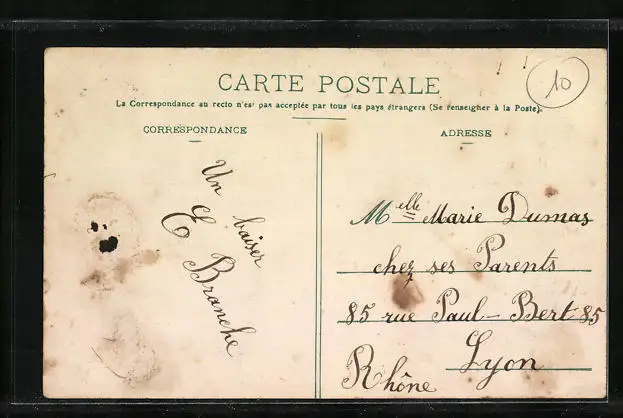 10
CARTE POSTALE
La Correspondance au recto n'est pas acceptée par tous les pays étrangers (Se renseigner à la Poste).
CORRESPONDANCE
ADRESSE
Un baiser
E Branche
Melle Marie Dumas
chez ses Parents
85 rue Paul-Bert 85
Lyon
Rhône